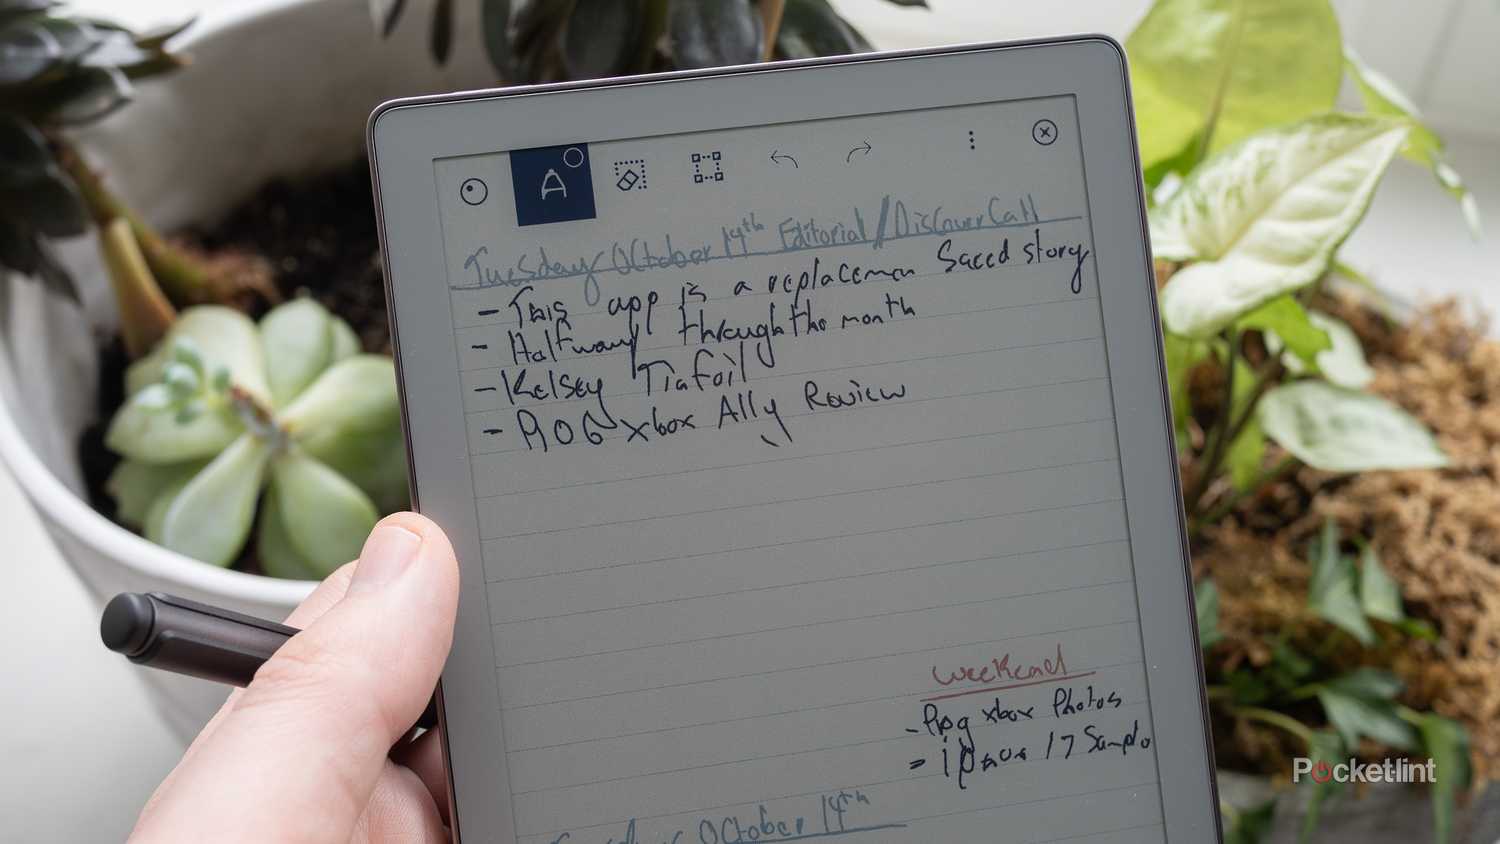 A
Tuesday October 14th Editorial/Discover Call
- This app is a replacemen Saeed story
- Halfway through the month
- Kelsey Tinfoil
- ROG xbox Ally Review
Weekend
- Rog xbox Photos
- iPhone 17 Sample
Tuesday October 14th
Pocketlint